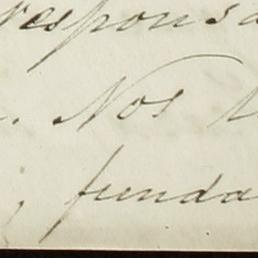 responsa
. Nos
, funda